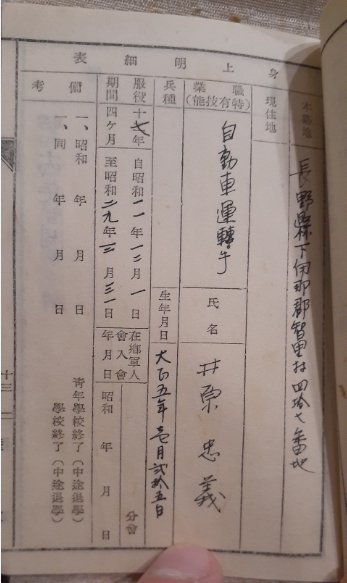 身上明細表
本籍地
長野縣下伊那郡智里村四拾七番地
現住地
職業(特有技能)
自動車運轉手
氏名
井原忠義
兵種
生年月日
大正五年壱月弐拾五日
服役期間
十七年四ケ月
自昭和一一年一二月一日
至昭和二九年三月三一日
在郷軍人會入會年月日
昭和 年 月 日
分會
備考
一、昭和 年 月 日 青年學校終了(中途退學)
一、同 年 月 日 學校終了(中途退學)
十三